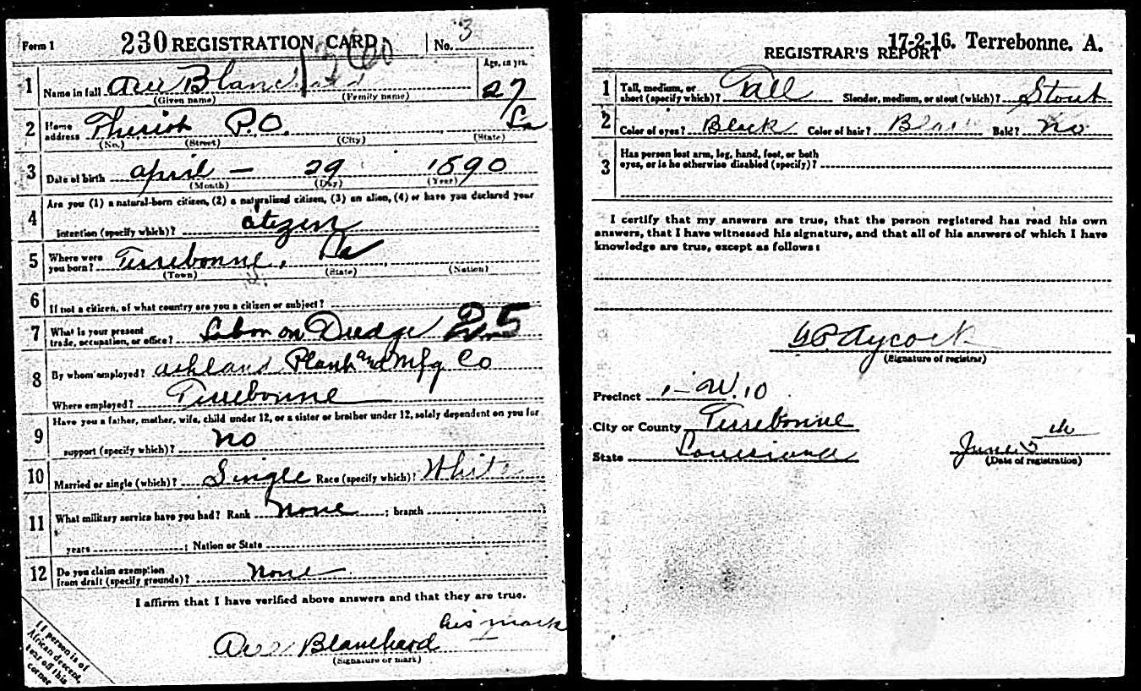 Form 1 230 REGISTRATION CARD. No. 3
1 Name in full Blanchard Age, in yrs. 27
(Given name) (Family name)
2 Home address Theriot P.O. La
(No.) (Street) (City) (State)
3 Date of birth april — 29 1890
(Month) (Day) (Year)
4 Are you (1) a natural-born citizen, (2) a naturalized citizen, (3) an alien, (4) or have you declared your
intention (specify which)? citezen
5 Where were you born? Terrebonne, La
(Town) (State) (Nation)
6 If not a citizen, of what country are you a citizen or subject?
7 What is your present trade, occupation, or office? Labor on Dredge 25
8 By whom employed? ashland Plant and Mfg Co
Where employed? Terrebonne
9 Have you a father, mother, wife, child under 12, or a sister or brother under 12, solely dependent on you for
support (specify which)? no
10 Married or single (which)? Single Race (specify which)? White
11 What military service have you had? Rank none ; branch
years ; Nation or State
12 Do you claim exemption from draft (specify grounds)? none
I affirm that I have verified above answers and that they are true.
his mark
Blanchard
(Signature or mark)
If person is of
African descent,
tear off this
corner
17-2-16. Terrebonne. A.
REGISTRAR'S REPORT
1 Tall, medium, or short (specify which)? Tall Slender, medium, or stout (which)? Stout
2 Color of eyes? Black Color of hair? Black Bald? No
3 Has person lost arm, leg, hand, foot, or both
eyes, or is he otherwise disabled (specify)?
I certify that my answers are true, that the person registered has read his own
answers, that I have witnessed his signature, and that all of his answers of which I have
knowledge are true, except as follows:
Aycock
(Signature of registrar)
Precinct 1 - W. 10
City or County Terrebonne
State Louisiana June 5th
(Date of registration)